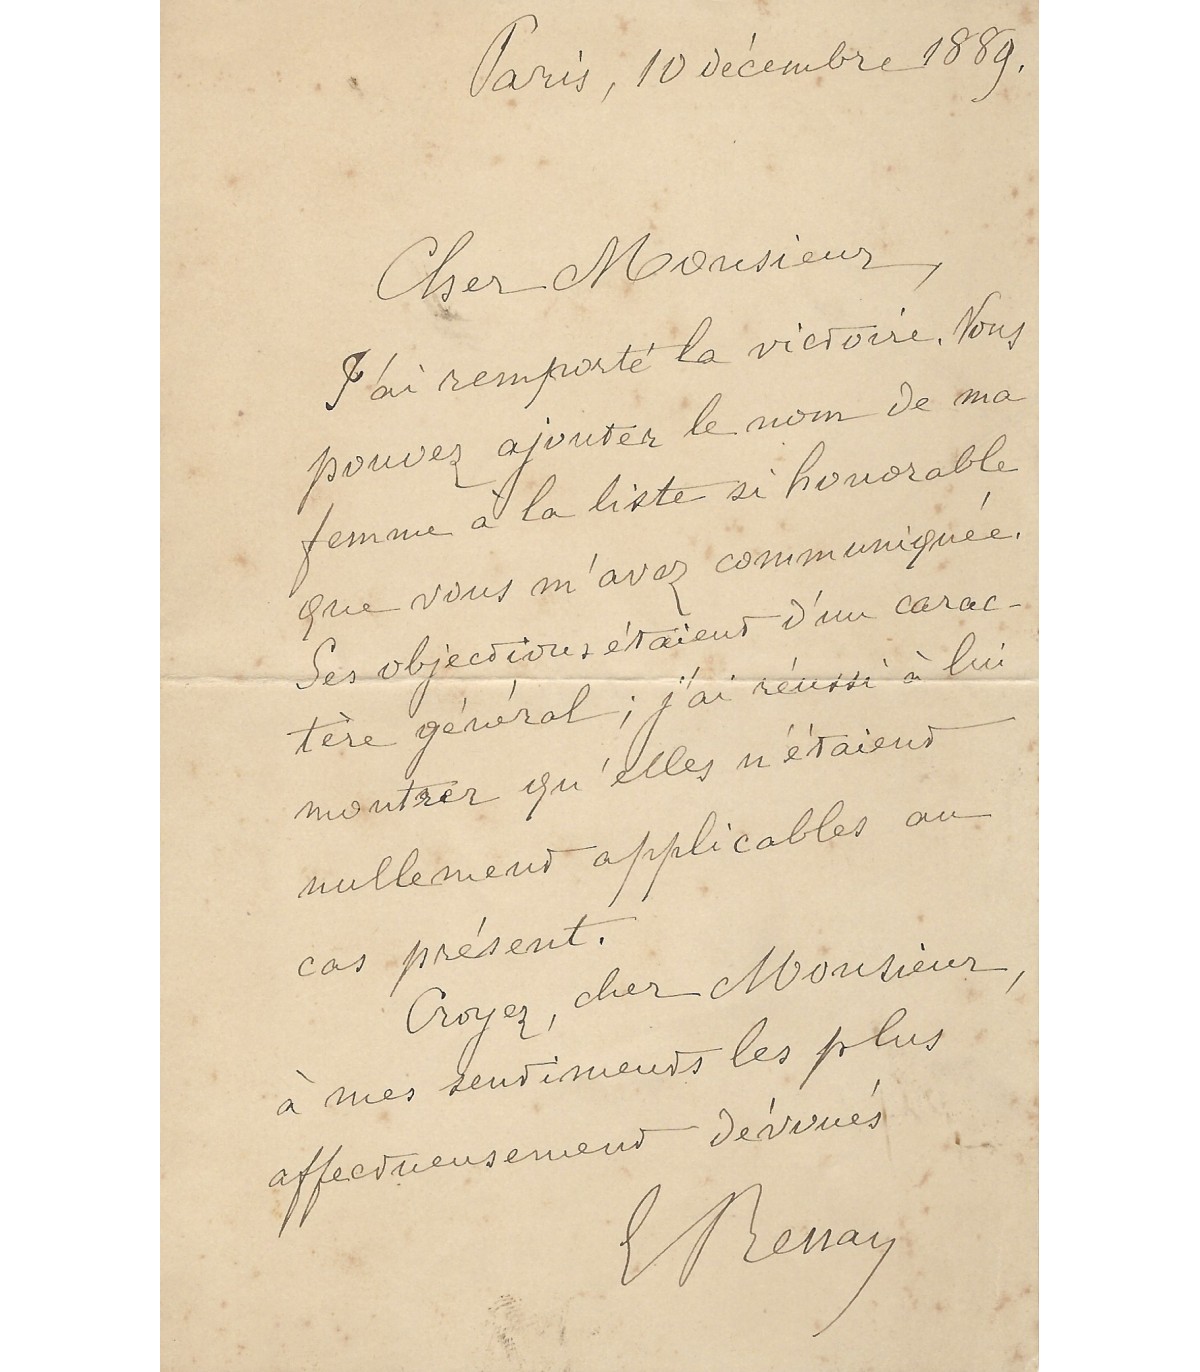 Paris, 10 décembre 1889.
Cher Monsieur,
J'ai remporté la victoire. Vous
pouvez ajouter le nom de ma
femme à la liste si honorable
que vous m'avez communiquée.
Ses objections étaient d'un carac-
tère général ; j'ai réussi à lui
montrer qu'elles n'étaient
nullement applicables au
cas présent.
Croyez, cher Monsieur,
à mes sentiments les plus
affectueusement dévoués
E Renan